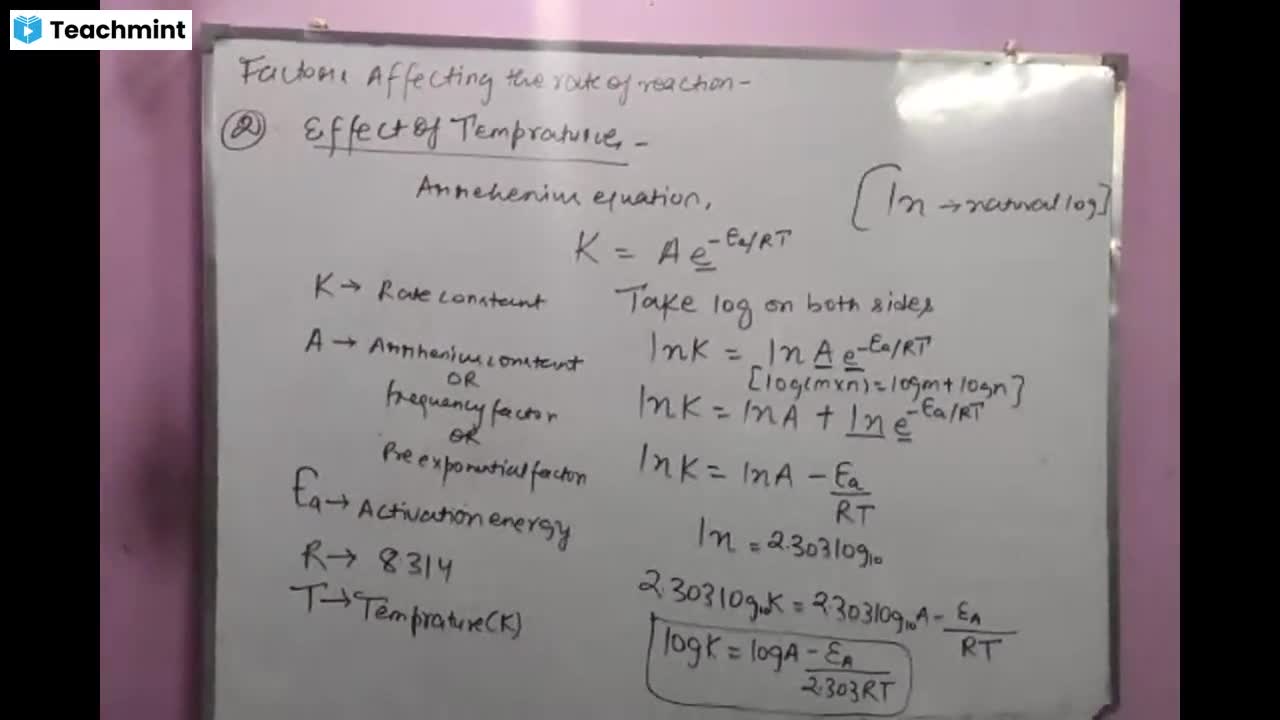 Teachmint
Factors Affecting the rate of reaction -
② Effect of Temprature -
Arrehenius equation,
[ln → natural log]
K = Ae^-Ea/RT
K → Rate constant
A → Arrhenius constant
OR
frequency factor
OR
Pre exponential factor
Ea → Activation energy
R → 8.314
T → Temprature (K)
Take log on both sides
lnK = ln A e^-Ea/RT
[log(m×n) = logm + logn]
lnK = lnA + ln e^-Ea/RT
lnK = lnA - Ea/RT
ln = 2.303log₁₀
2.303log₁₀K = 2.303log₁₀A - EA/RT
logK = logA - EA/2.303RT